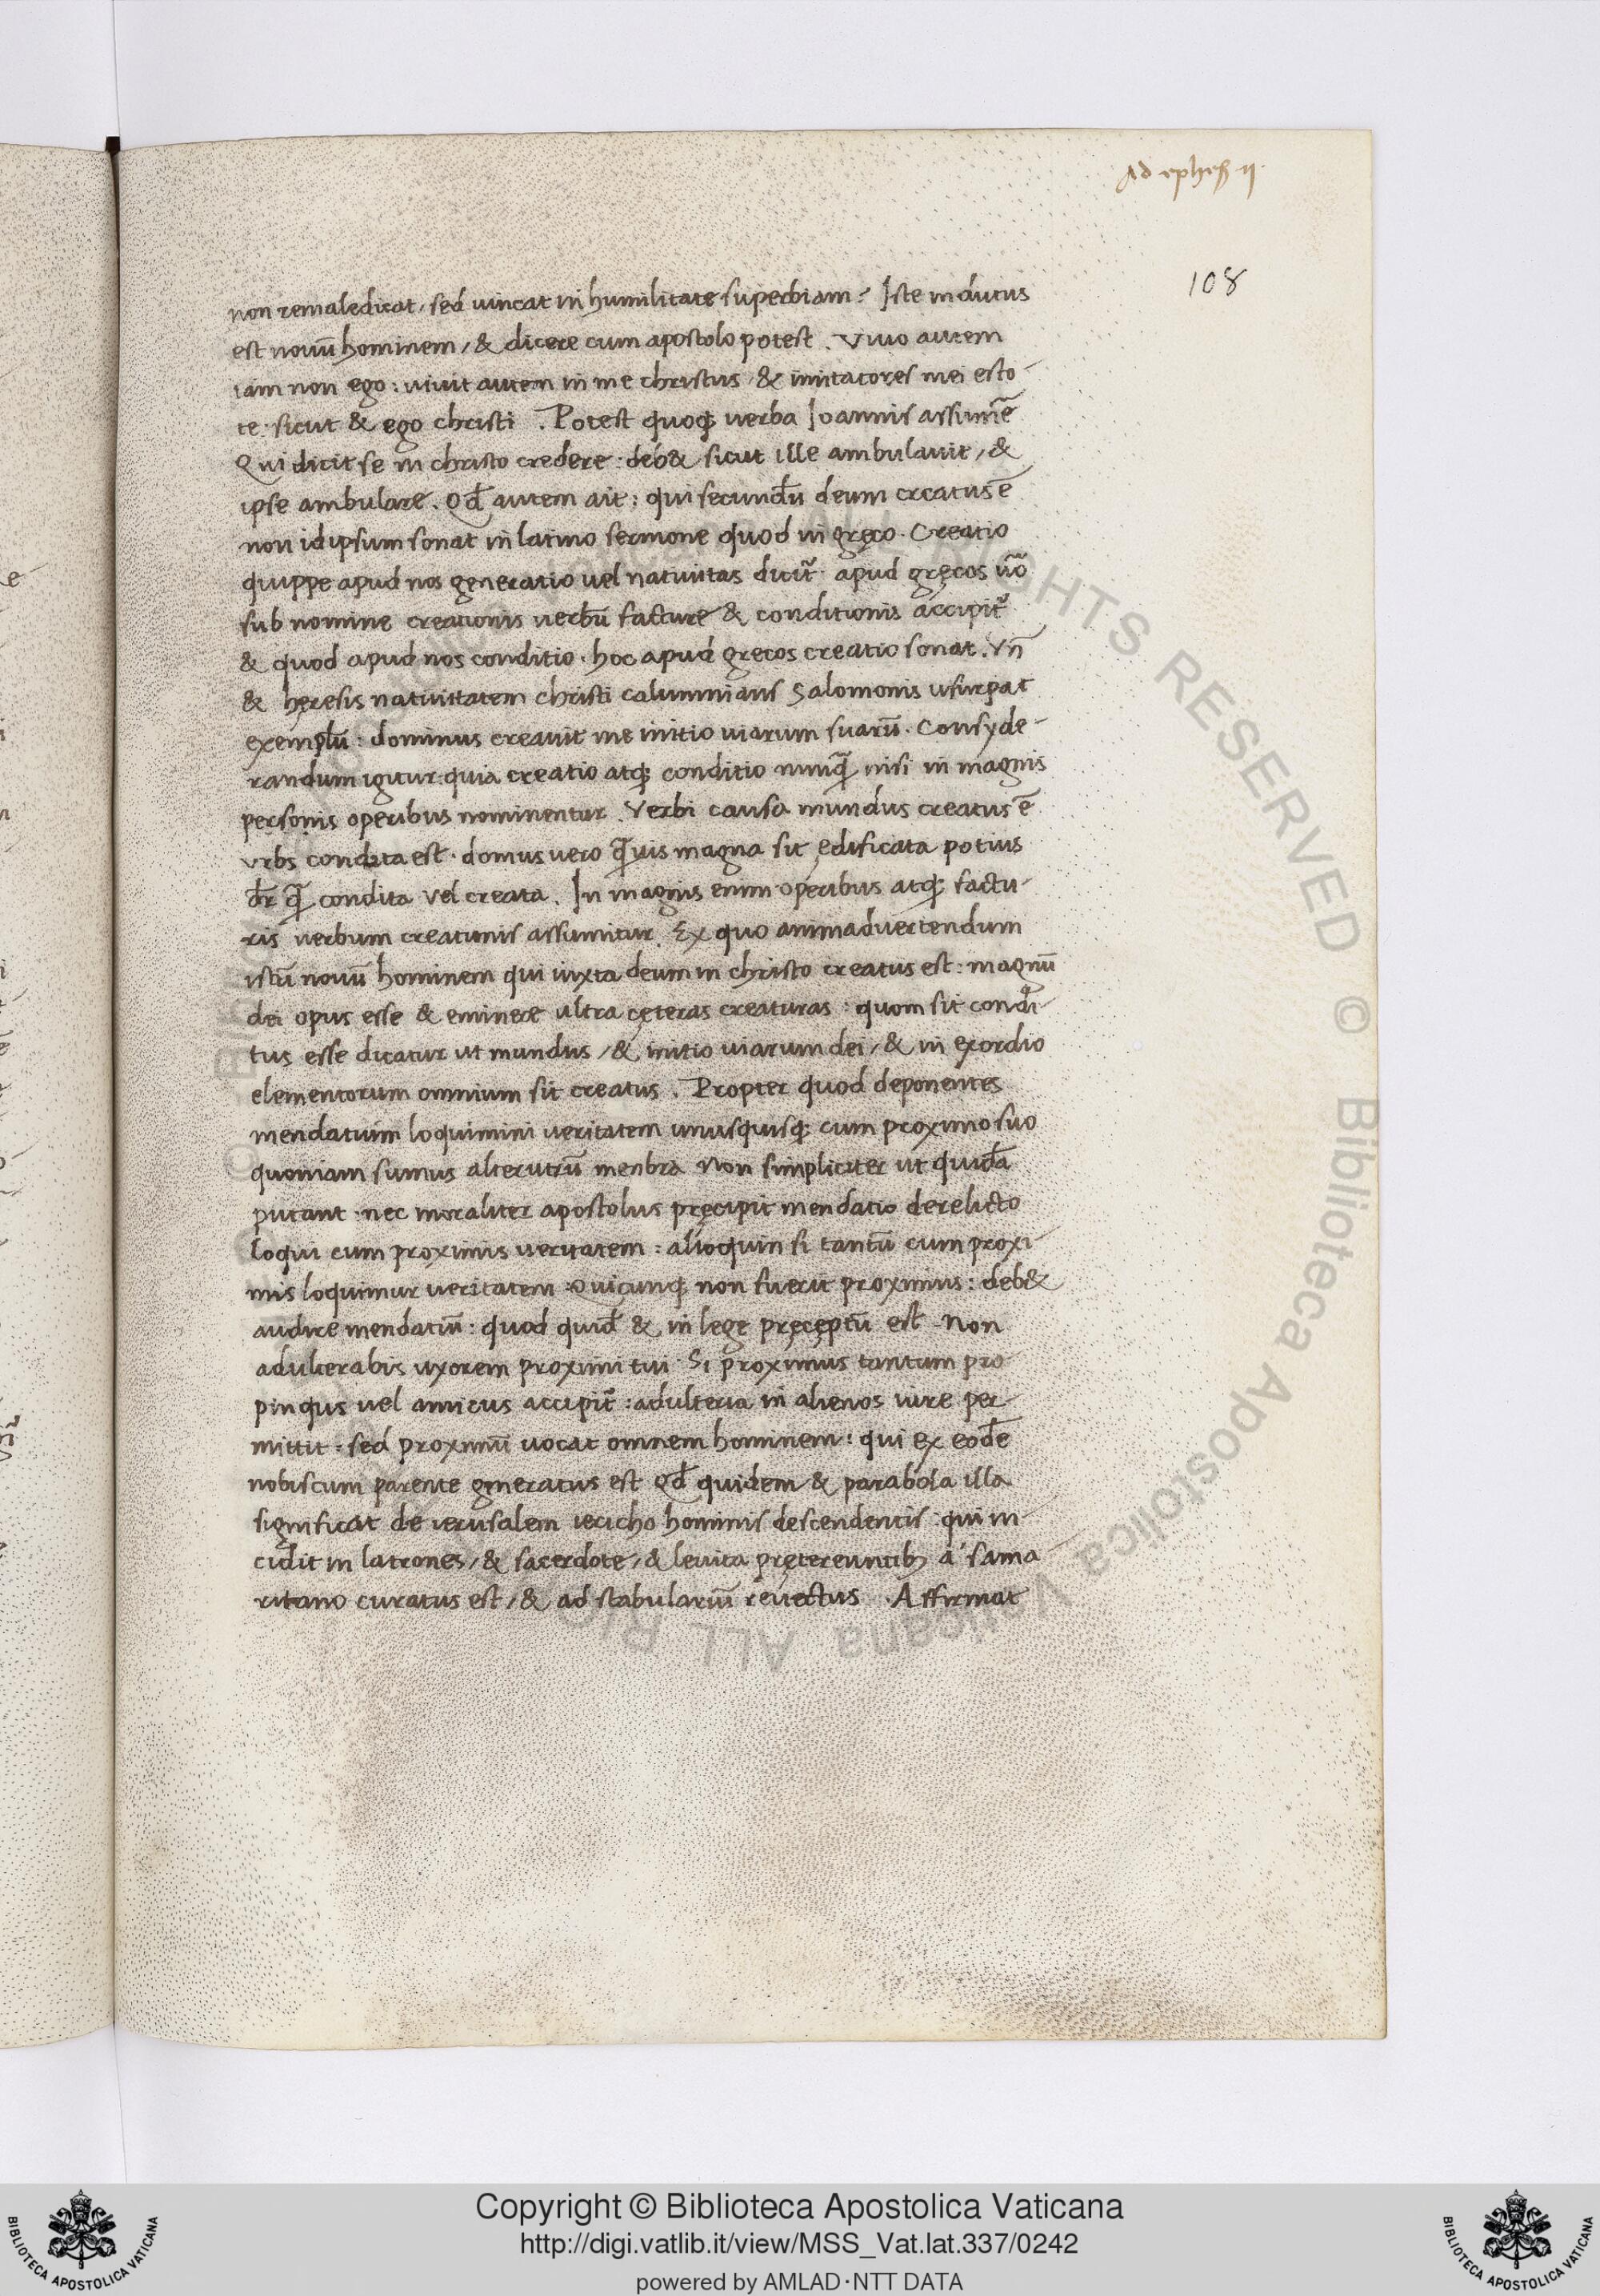 Ad ephes ii
108
non remaledicat, sed vincat in humilitate superbiam? Iste indutus
est nouū hominem, & dicere cum apostolo potest. Viuo autem
iam non ego: viuit autem in me christus & imitatores mei esto-
te· sicut & ego christi. Potest quoq; verba Ioannis assumē
Qui dicit se in christo credere· deb& sicut ille ambulauit, &
ipse ambulare. Qđ autem ait: qui secundū deum creatus ē
non idipsum sonat in latino sermone quod in gręco. Creatio
quippe apud nos generatio vel natiuitas dicit̃· apud gręcos ṽo
sub nomine creationis verbū facture & conditionis accipit̃
& quod apud nos conditio· hoc apud grecos creatio sonat. Vñ
& hęresis natiuitatem christi calumnians Salomonis usurpat
exemplū: dominus creauit me initio viarum suarū. Consyde-
randum igitur: quia creatio atq; conditio nunq̃ nisi in magnis
personis operibus nominentur. Verbi causa mundus creatus ē
vrbs condita est· domus vero q̃uis magna sit ędificata potius
dr̄ q̃ condita vel creata. In magnis enim operibus atq; factu-
ris verbum creationis assumitur. Ex quo animadvertendum
istū nouū hominem qui iuxta deum in christo creatus est: magnū
dei opus esse & eminere ultra cęteras creaturas: quom sit condi-
tus esse dicatur ut mundus, & initio viarum dei, & in exordio
elementorum omnium sit creatus. Propter quod deponentes
mendatium loquimini veritatem unusquisq; cum proximo suo
quoniam sumus alterutrū menbra Non simpliciter ut quidā
putant· nec moraliter apostolus pręcipit mendatio derelicto
loqui cum proximis veritatem: alioquin si tantū cum proxi-
mis loquimur veritatem: Quicunq; non fuerit proximus: deb&
audire mendatiū: quod quid̄ & in lege pręcęptū est. Non
adulterabis uxorem proximi tui. Si proximus tantum pro
pinqus vel amicus accipit̃: adulteria in alienos iure per-
mittit: sed proximū vocat omnem hominem: qui ex eodē
nobiscum parente generatus est Qđ quidem & parabola illa
significat de ierusalem iericho hominis descendentis: qui in-
cidit in latrones, & sacerdote, & leuita pręteruntib; a sama
ritano curatus est, & ad stabulariū reuectus. Affirmat
Copyright © Biblioteca Apostolica Vaticana
http://digi.vatlib.it/view/MSS_Vat.lat.337/0242
powered by AMLAD·NTT DATA